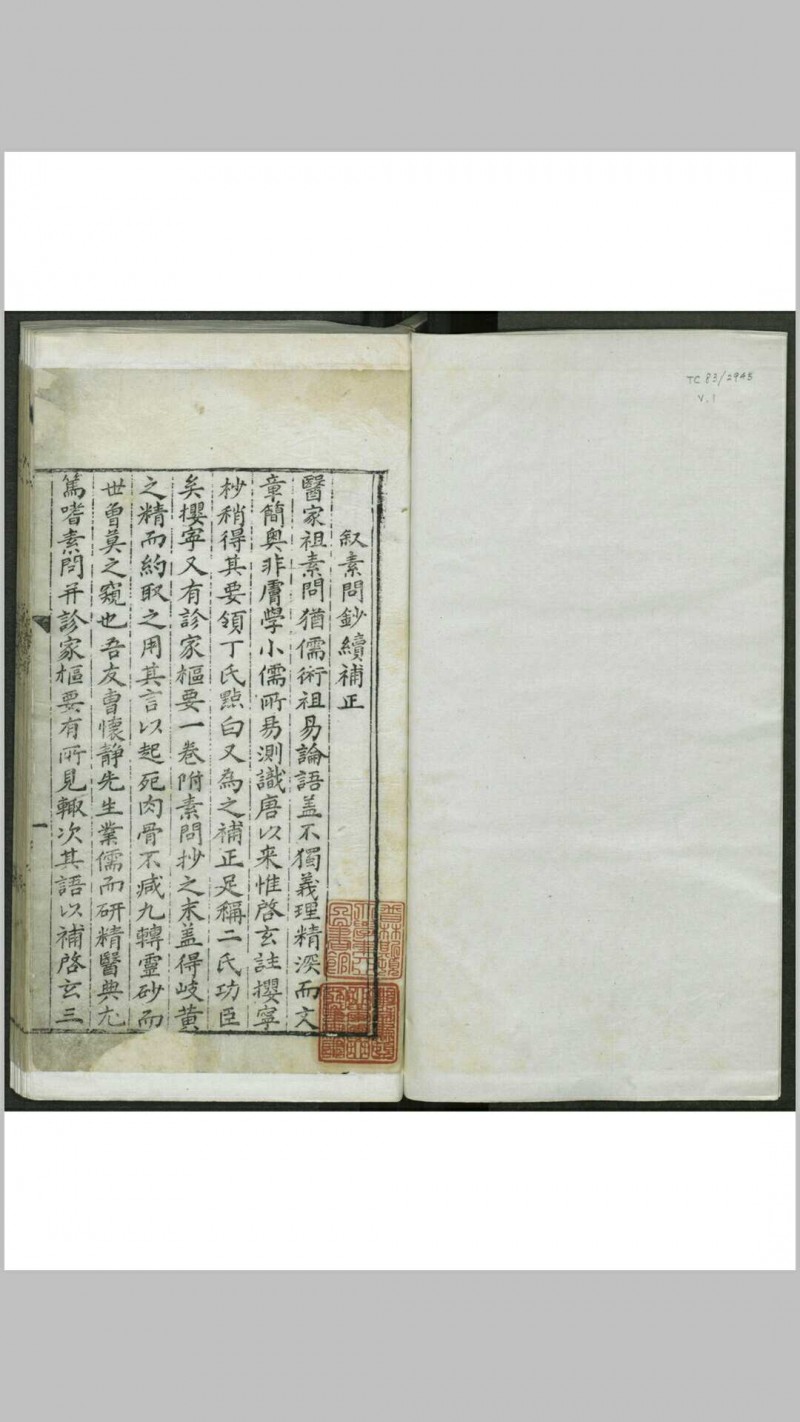 叙素問鈔續補正
醫家祖素問猶儒術祖易論語盖不獨義理精深而文
章簡奥非膚學小儒所易測識唐以来惟啓玄註攖寧
抄稍得其要領丁氏點白又為之補正足稱二氏功臣
矣攖寧又有診家樞要一卷附素問抄之末盖得岐黄
之精而約取之用其言以起死肉骨不减九轉靈砂而
世曾莫之窺也吾友曹懷静先生業儒而研精醫典尤
篤嗜素問并診家樞要有所見輙次其語以補啓玄三
一
TC 83/2945
V.1